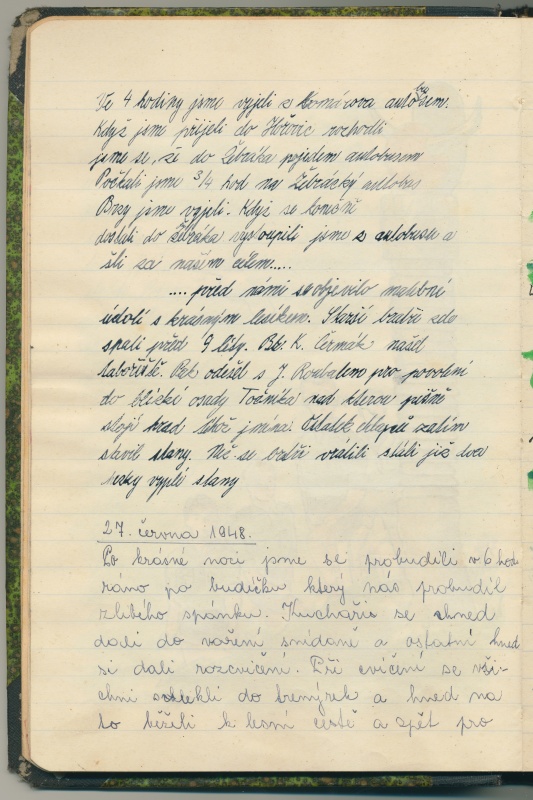 Ve 4 hodiny jsme vyjeli z Komárova autobusem.
Když jsme přijeli do Hořovic rozhodli
jsme se, že do Žebráka pojedem autobusem
Počkali jsme 3/4 hod na Žebrácký autobus
Brzy jsme vyjeli. Když se konečně
dostali do Žebráka vystoupili jsme z autobusu a
šli za naším cílem.....
....před nami se objevilo malebné
údolí s krásným lesíkem. Starší bratři zde
spali před 9 léty. Br. K. Čermák našel
tábořiště. Pak odešel s J. Roubalem pro povolení
do blízké osady Točníka nad kterou pyšně
stojí hrad téhož jména. Ostatek chlapců zatím
stavěl stany. Než se bratři vrátili stáli již dva
hezky vyplé stany
27. června 1948.
Po krásné noci jsme se probudili v 6 hod
ráno po budíčku který nás probudil
z libého spánku. Kuchařis se ihned
dali do vaření snídaně a ostatní hned
si dali rozcvičení. Při cvičení se vši-
chni svlekli do trenýrek a hned na
to běželi k lesní cestě a zpět pro